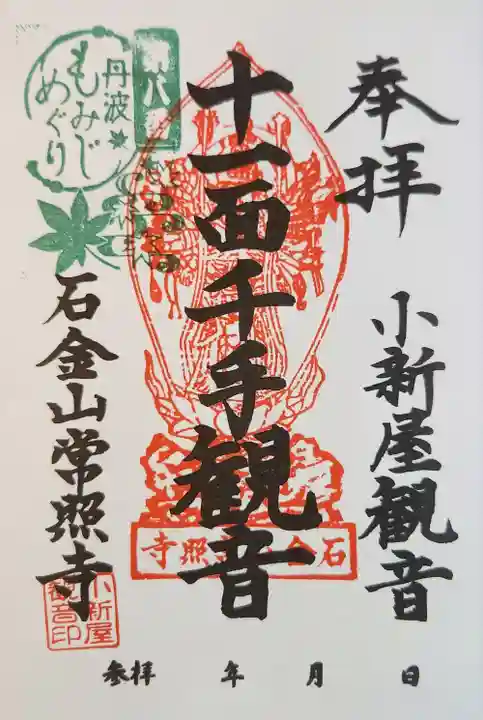 奉拝
小新屋観音
十一面千手観音
石金山常照寺
丹波
もみじ
めぐり
石金山常照寺
小新屋
観音印
参拝 年 月 日